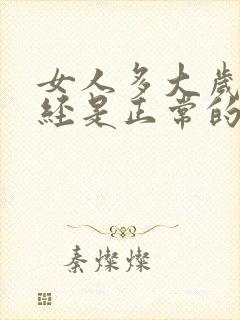 女人多大歲
經是正常的
秦燦燦